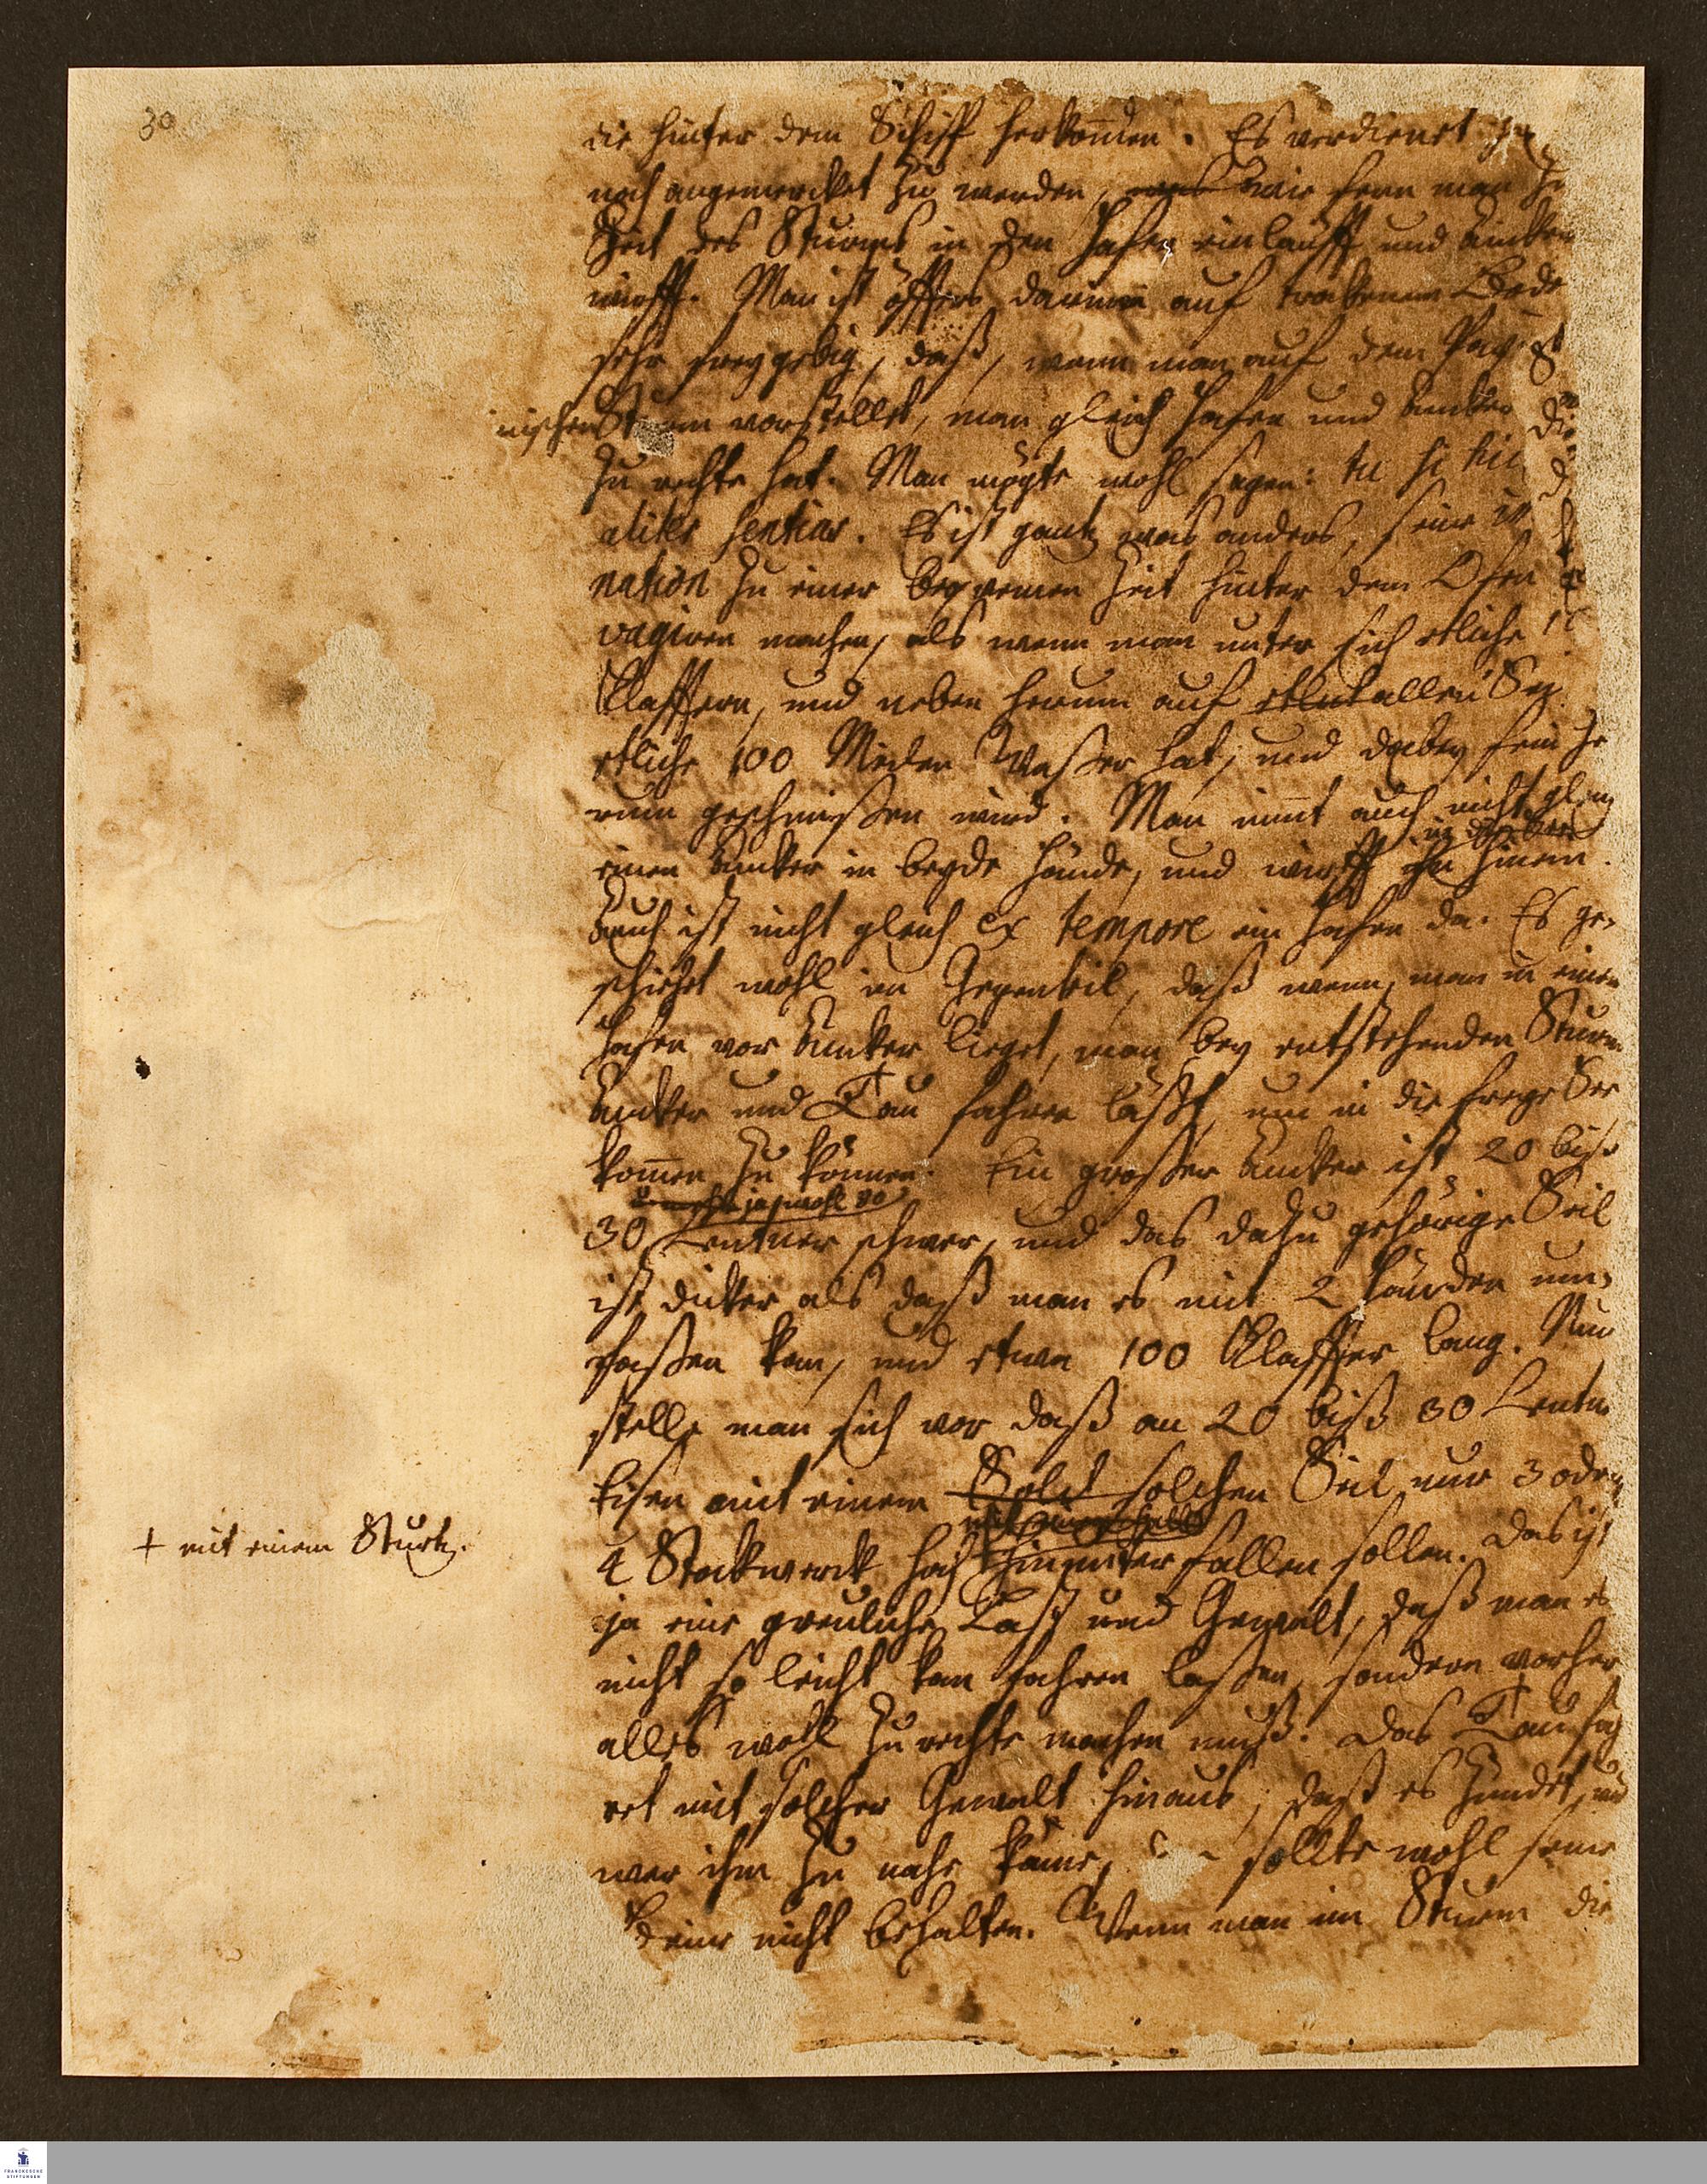 30
die hinter dem Schiff herkom̃en. Es verdienet
noch angemercket zu werden, was wie fern man
Zeit des Sturms in den Hafen einläufft und ancker
wirfft. Man ist öffters darinn auf trockenem
sehr freygebig, daß, wenn man auf dem
nischen Sturm vorstellet, man gleich Hafen und ancker
zu rechte hat. Man mögte wohl sagen: tu si hic
aliter sentias. Es ist gantz was anders, seine
nation zu einer beqvemen Zeit hinter dem Ofen
vagiren machen, als wenn man unter sich etliche
Klafftern, und neben herum auf allen
etliche 100 Meilen Waßer hat, und dabey fein
rum geschmißen wird. Man nim̃t auch nicht
einen ancker in beyde Hände, und wirfft ihn hinein.
auch ist nicht gleich ex tempore ein Hafen da. Es ge-
schiehet wohl im Gegenteil, daß wenn man in einem
Hafen vor ancker lieget, man bey entstehenden Sturm
ancker und Tau fahren läßt, um in die freye See
kom̃en zu können. Ein großer ancker ist 20 biß
30 Centner schwer, und das dazu gehörige Seil
ist dicker als daß man es mit 2 Händen um-
faßen kan, und etwa 100 Klaffter lang. Nun
stelle man sich vor daß an 20 biß 30 Centn
Eisen mit einem solchen Seil nur 3 oder
+ mit einem Sturtz.
4 Stockwerck hoch hinunter fallen sollen. Das ist
ja eine greuliche Last und Gewalt, daß man es
nicht so leicht kan fahren laßen, sondern vorher
alles wohl zu rechte machen muß. Das Tau fäh
ret mit solcher Gewalt hinaus, daß es zündet, und
wer ihm zu nahe käme, sollte wohl seine
Beine nicht behalten. Wenn man im Sturm die
FRANCKESCHE STIFTUNGEN